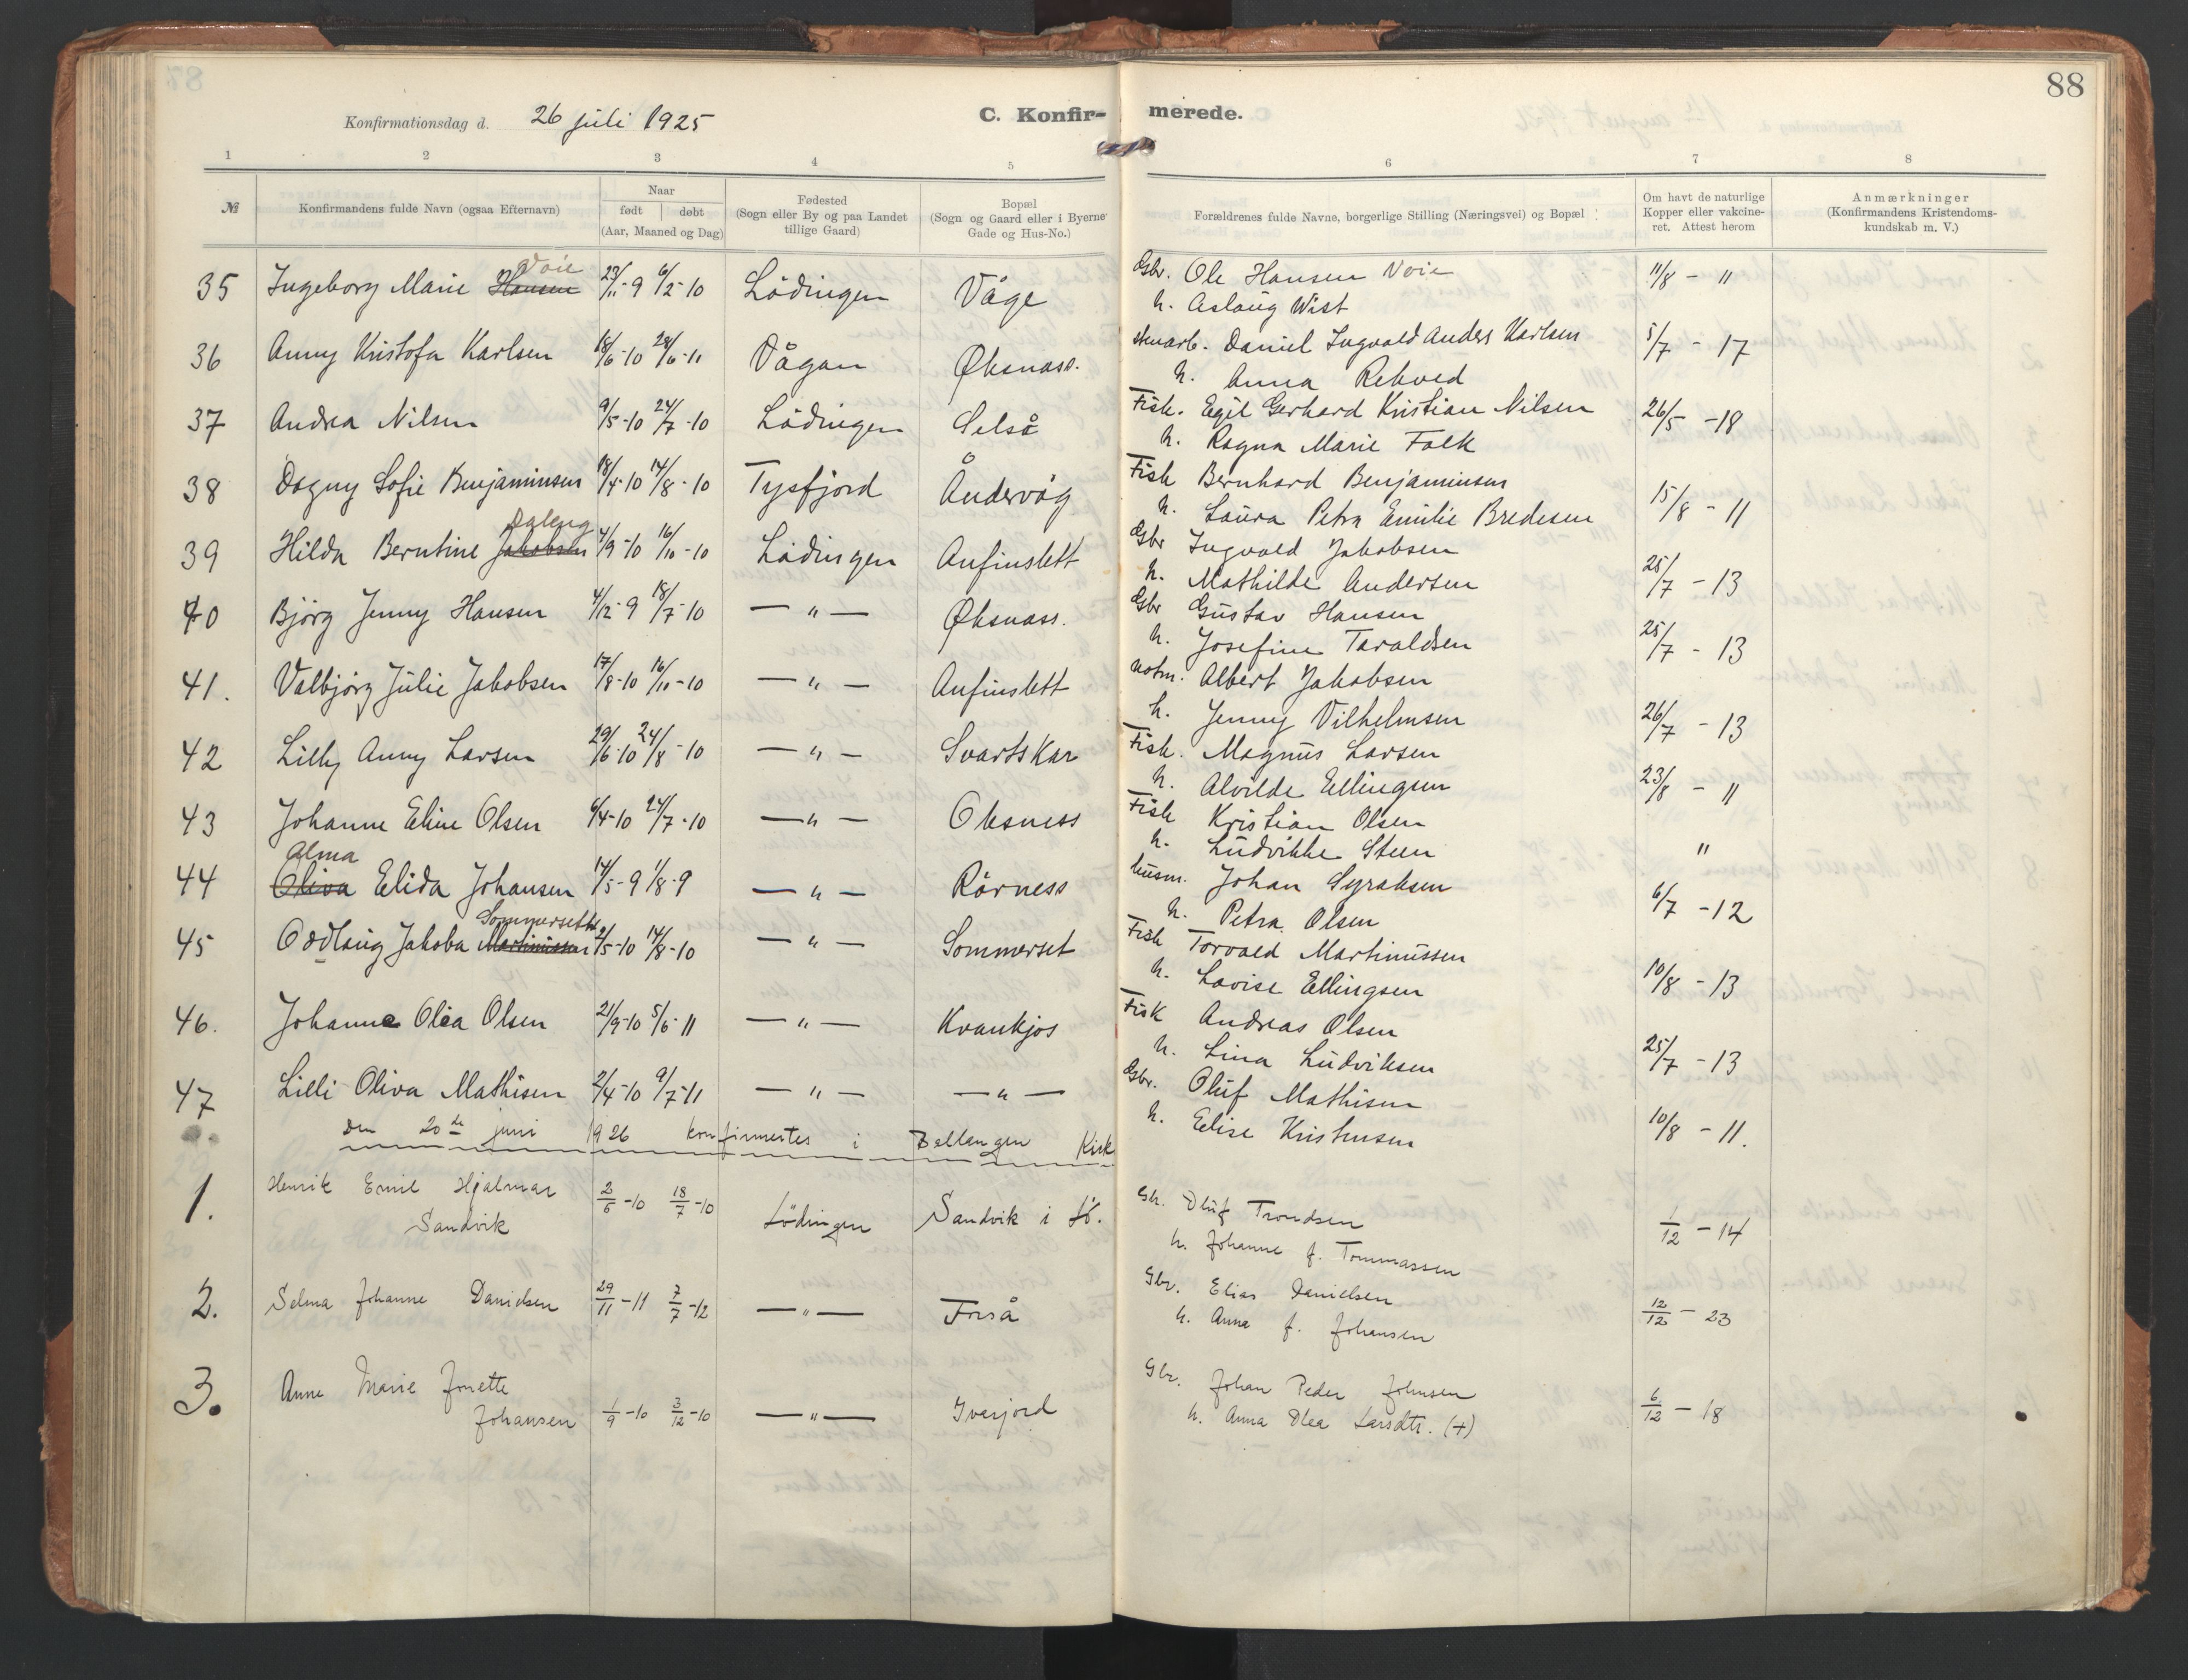 88
Konfirmationsdag d. 26 juli 1925 C. Konfir- merede.
1 2 3 4 5 6 7 8
№ Konfirmandens fulde Navn (ogsaa Efternavn) Naar født døbt (Aar, Maaned og Dag) Fødested (Sogn eller By og paa Landet tillige Gaard) Bopæl (Sogn og Gaard eller i Byerne Gade og Hus-No.) Forældrenes fulde Navne, borgerlige Stilling (Næringsvei) og Bopæl Om havt de naturlige Kopper eller vakcineret. Attest herom Anmærkninger (Konfirmandens Kristendomskundskab m. V.)
Voie
35 Ingeborg Marie Hansen 23/11-9 6/2-10 Lödingen Våge Gbr. Ole Hansen Voie 11/8 - 11
h. Aslaug Wist
36 Anny Kristofa Karlsen 18/6-10 28/6-11 Vågan Øksnass. Daniel Ingvald Anders Karlsen 5/7 - 17
h. Anna Rekved
37 Andrea Nilsen 9/5-10 24/7-10 Lödingen Selså Fisk. Egil Gerhard Kristian Nilsen 26/5 - 18
h. Ragna Marie Falk
38 Dagny Sofie Benjaminsen 18/4-10 14/8-10 Tysfjord Åndervåg Fisk Bernhard Benjaminsen 15/8 - 11
h. Laura Petra Emilie Bredesen
Daleng
39 Hilda Berntine Jakobsen 4/9-10 16/10-10 Lödingen Anfinslett Gbr Ingvald Jakobsen 25/7 - 13
h. Mathilde Andersen
40 Bjórg Jenny Hansen 4/12-9 18/7-10 — " — Øksnass. Gbr Gustav Hansen 25/7 - 13
h. Josefine Taraldsen
41. Valbjórg Julie Jakobsen 17/8-10 16/10-10 — " — Anfinslett Albert Jakobsen 26/7 - 13
h. Jenny Vilhelmsen
42 Lilly Anny Larsen 29/6-10 24/8-10 — " — Svartskar Fisk. Magnus Larsen 23/8 - 11
h. Alvilde Ellingsen
43 Johanne Eline Olsen 6/4-10 24/7-10 — " — Oksness Fisk Kristian Olsen "
h. Ludvikke Steen
Alma
44 Oliva Elida Johansen 14/5-9 1/8-9 — " — Rörness husm. Johan Syraksen 6/7 - 12
h. Petra Olsen
Sommerseth
45 Oddlaug Jakoba Martinussen 2/5-10 14/8-10 — " — Sommerset Fisk Torvald Martinussen 10/8 - 13
h. Lovise Ellingsen
46. Johanne Olea Olsen 21/9-10 5/6-11 — " — Kvankjos Fisk Andreas Olsen 25/7 - 13
h. Lina Ludviksen
47 Lilli Oliva Mathisen 2/4-10 9/7-11 — " — — " — Gbr. Oluf Mathisen 10/8 - 11.
h. Elise Kristensen
den 20de juni 1926 konfirmertes i Kirk
1. Henrik Emil Hjalmar Sandvik 2/6-10 18/7-10 Lödingen Sandvik i Lö. Gbr. Oluf Trondsen 1/12 - 14
h. Johanne f. Tommassen
2. Selma Johanne Danielsen 29/11-11 7/7-12 — " — Forså Gbr. Elias Danielsen 12/12 - 23
h. Anna f. Johansen
3. Anne Marie Jonette Johansen 1/9-10 3/12-10 — " — Ivarjord Gbr. Johan Peder Johnsen 6/12 - 18
h. Anna Olea Larsdtr. (+)